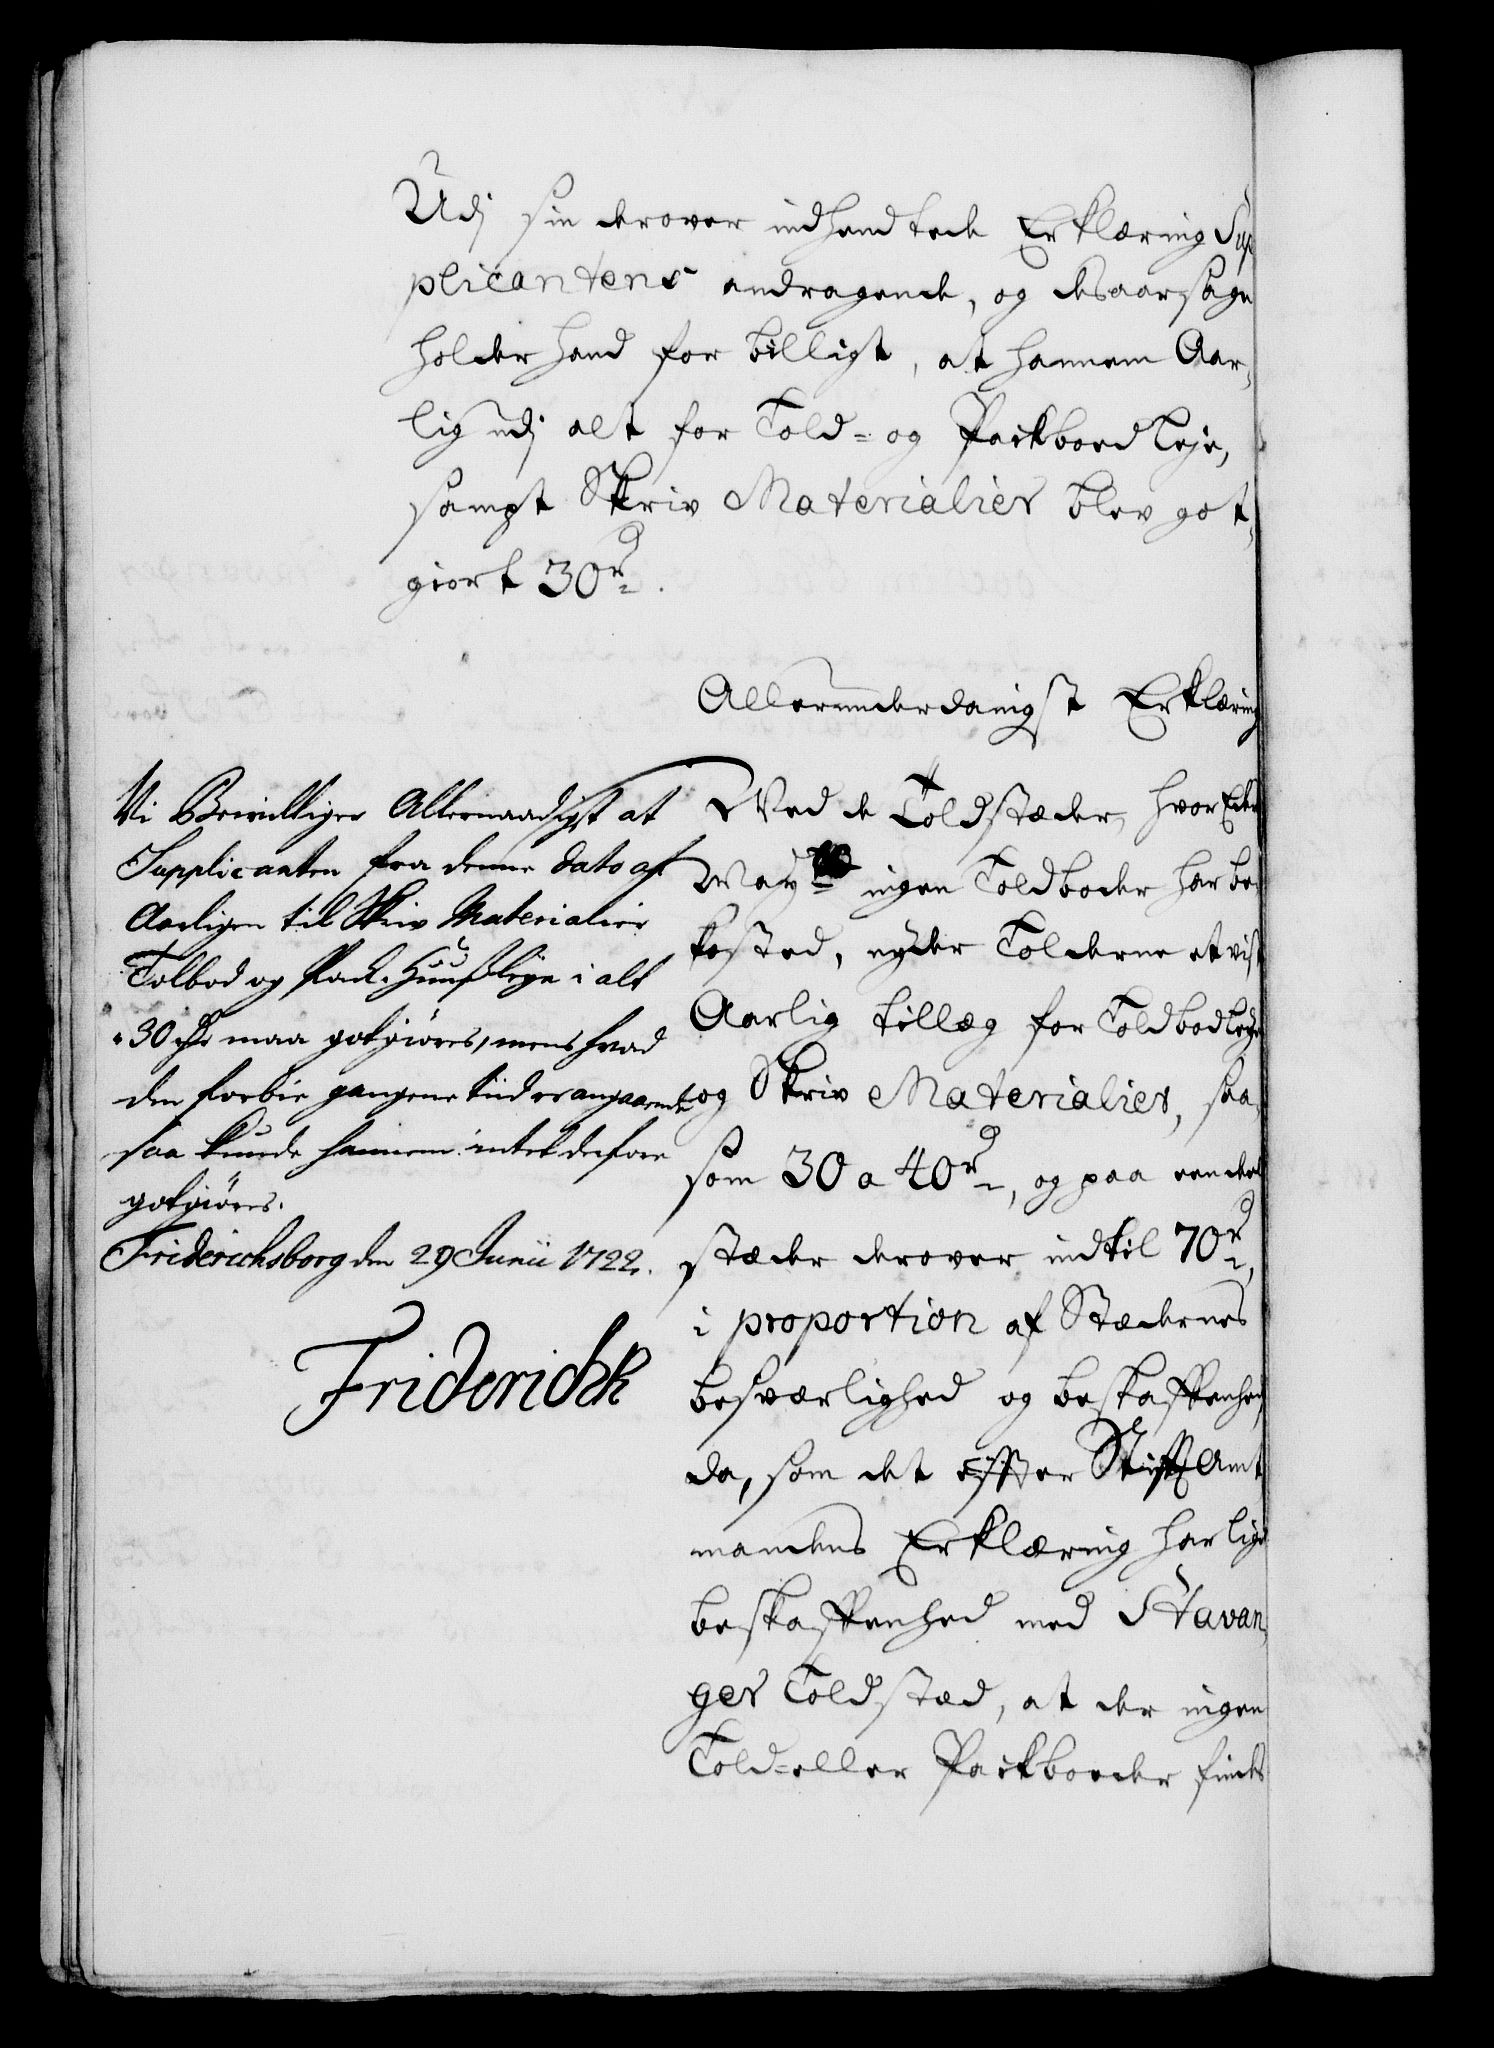 Udj sin derover indhendtede Erklæring Sup
plicantens andragende, og desaarsage
holder hand for billigt, at hannem Aar,
lig udj alt for Told= og Packboed Leje,
sampt Skriv Materialier blev got,
giort 30 rd.
Allerunderdanigst Erklæring
Ved de Toldstæder, hvor Eders
Mayts ingen Toldboder har be
kosted, nyder Tolderne et vist
Aarlig tillæg for Toldbodleye
og Skriv Materialier, saa,
som 30 a 40 rd, og paa een deel
stæder derover indtil 70 rd,
i proportion af Stædernes
besværlighed og beskaffenhed
da, som det effter Stifft Amt
mandens Erklæring har lige
beskaffenhed med Stavan,
ger Toldstæd, at der ingen
Told= eller Packboeder findes
Vi Bewilliger Allernaadigst at
Supplicanten fra denne dato af
Aarligen til Skriv Materialier
Tolbod og Pack-Huus leye i alt
30 rdr maa gotgiöres, mens hvad
den forbie gangene tiid er angaaende
saa kunde hannem intet derfore
gotgiöres.
Friderichsborg den 29 Junii 1722.
Friderich R